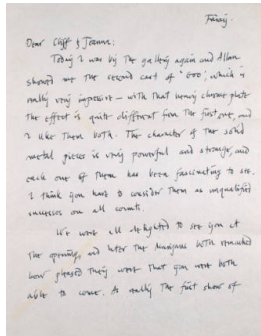 Friday.
Dear Cliff & Joanna:
Today I was by the gallery again and Allan
showed me the second cast of "Goo", which is
really very impressive – with that heavy chrome plate
the effect is quite different from the first one, and
I like them both. The character of the solid
metal pieces is very powerful and strange, and
each one of them has been fascinating to see.
I think you have to consider them as unqualified
successes on all counts.
We were all delighted to see you at
the opening, and later the both remarked
how pleased they were that you were both
able to come. As really the first show of